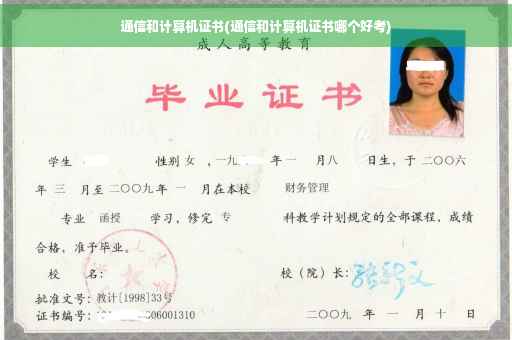 通信和计算机证书(通信和计算机证书哪个好考)
成人高等教育
毕业证书
学生 性别 女 ，一九 年 一 月八 日生，于 二〇〇六
年 三 月至 二〇〇九 年 一 月在本校 财务管理
专业 函授 学习，修完 专 科教学计划规定的全部课程，成绩
合格，准予毕业。
校 名： 校（院）长：
批准文号：教计[1998]33号
证书编号： 006001310 二〇〇九 年 一 月 十 日